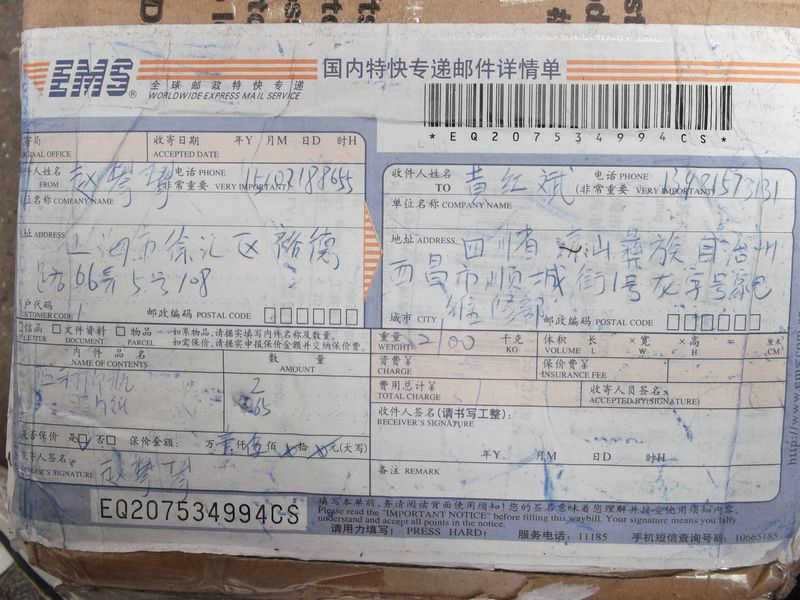 EMS®
全球邮政特快专递
WORLDWIDE EXPRESS MAIL SERVICE
国内特快专递邮件详情单
*EQ207534994CS*
收寄日期 年Y 月M 日D 时H
ACCEPTED DATE
寄局
OFFICE
件人姓名 赵 电话 PHONE 15102188655
FROM (非常重要 VERY IMPORTANT)
位名称 COMPANY NAME
地址 ADDRESS 上海市徐汇区裕德
路66弄5号108
户代码
CUSTOMER CODE 邮政编码 POSTAL CODE
收件人姓名 黄红斌 电话 PHONE
TO (非常重要 VERY IMPORTANT)
单位名称 COMPANY NAME
地址 ADDRESS 四川省凉山彝族自治州
西昌市顺城街1号龙字号家电
维修部
城市 CITY 邮政编码 POSTAL CODE
信函 文件资料 物品 如系物品,请据实填写内件名称及数量。
LETTER DOCUMENT PARCEL 如需保价,请据实申报保价金额并交纳保价费。
内件品名 数量
NAME OF CONTENTS AMOUNT
2
是否保价 是 否 保价金额: 万 仟 佰 拾 元(大写)
寄件人签名:
SENDER'S SIGNATURE 赵
重量 2100 千克 体积 长 ×宽 ×高 = 厘米³
WEIGHT KG VOLUME L W H CM³
资费¥ 保价费¥
CHARGE INSURANCE FEE
费用总计¥ 收寄人员签名:
TOTAL CHARGE ACCEPTED BY(SIGNATURE)
收件人签名(请书写工整):
RECEIVER'S SIGNATURE
年Y 月M 日D 时H
备注 REMARK
EQ207534994CS
填写本单前,务请阅读背面使用须知!您的签名意味着您理解并接受使用须知内容。
Please read the "IMPORTANT NOTICE" before filling this waybill. Your signature means you fully
understand and accept all points in the notice.
请用力填写! PRESS HARD! 服务电话:11185 手机短信查询号码:10665185